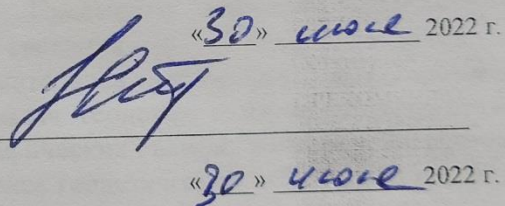 «30» июня 2022 г.
«30» июня 2022 г.